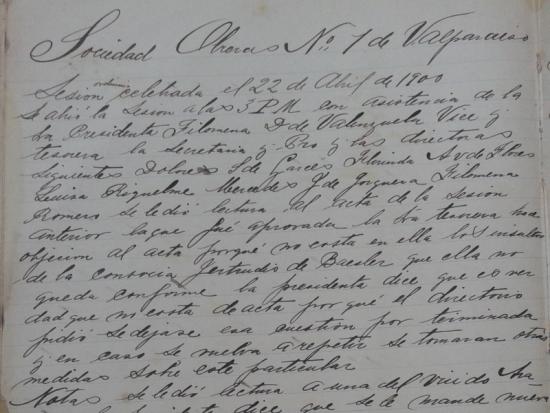 Sociedad Obreras No. 1 de Valparaiso
Sesion ordinaria celebrada el 22 de Abril de 1900
Se abrió la Sesion a las 3 P.M con asistencia de la
Sra Presidenta Filomena D de Valenzuela Vice y
tesorera la Secretaria y Pro y las directoras
siguientes Dolores S de Garcés Florinda A v de Flores
Luisa Riquelme Mercedes J de Jorquera Filomena
Romero se le dió lectura al acta de la Sesion
anterior la que fué aprovada la Sra tesorera hace
objecion al acta porqué no costa en ella los insultos
de la consocia Gertrudis de Baesler que ella no
queda conforme la presidenta dice que es ver
dad que no costa de acta por qué el directorio
pidió se dejase esa cuestion por terminada
y en caso se vuelva a repetir se tomaran otras
medidas sobre este particular
Notas se le dió lectura a una del
dice que se le mande nueva